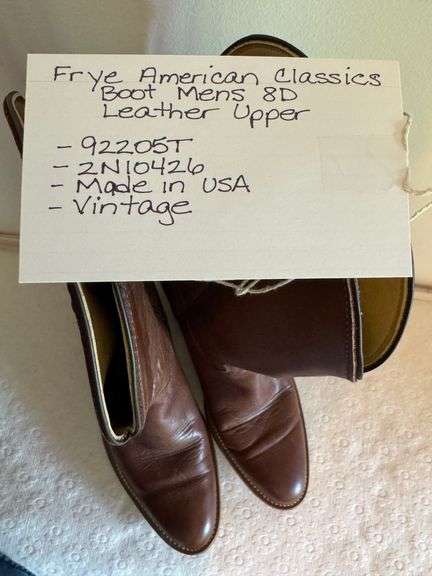 Frye American Classics
Boot Mens 8D
Leather Upper
- 92205T
- 2N10426
- Made in USA
- Vintage